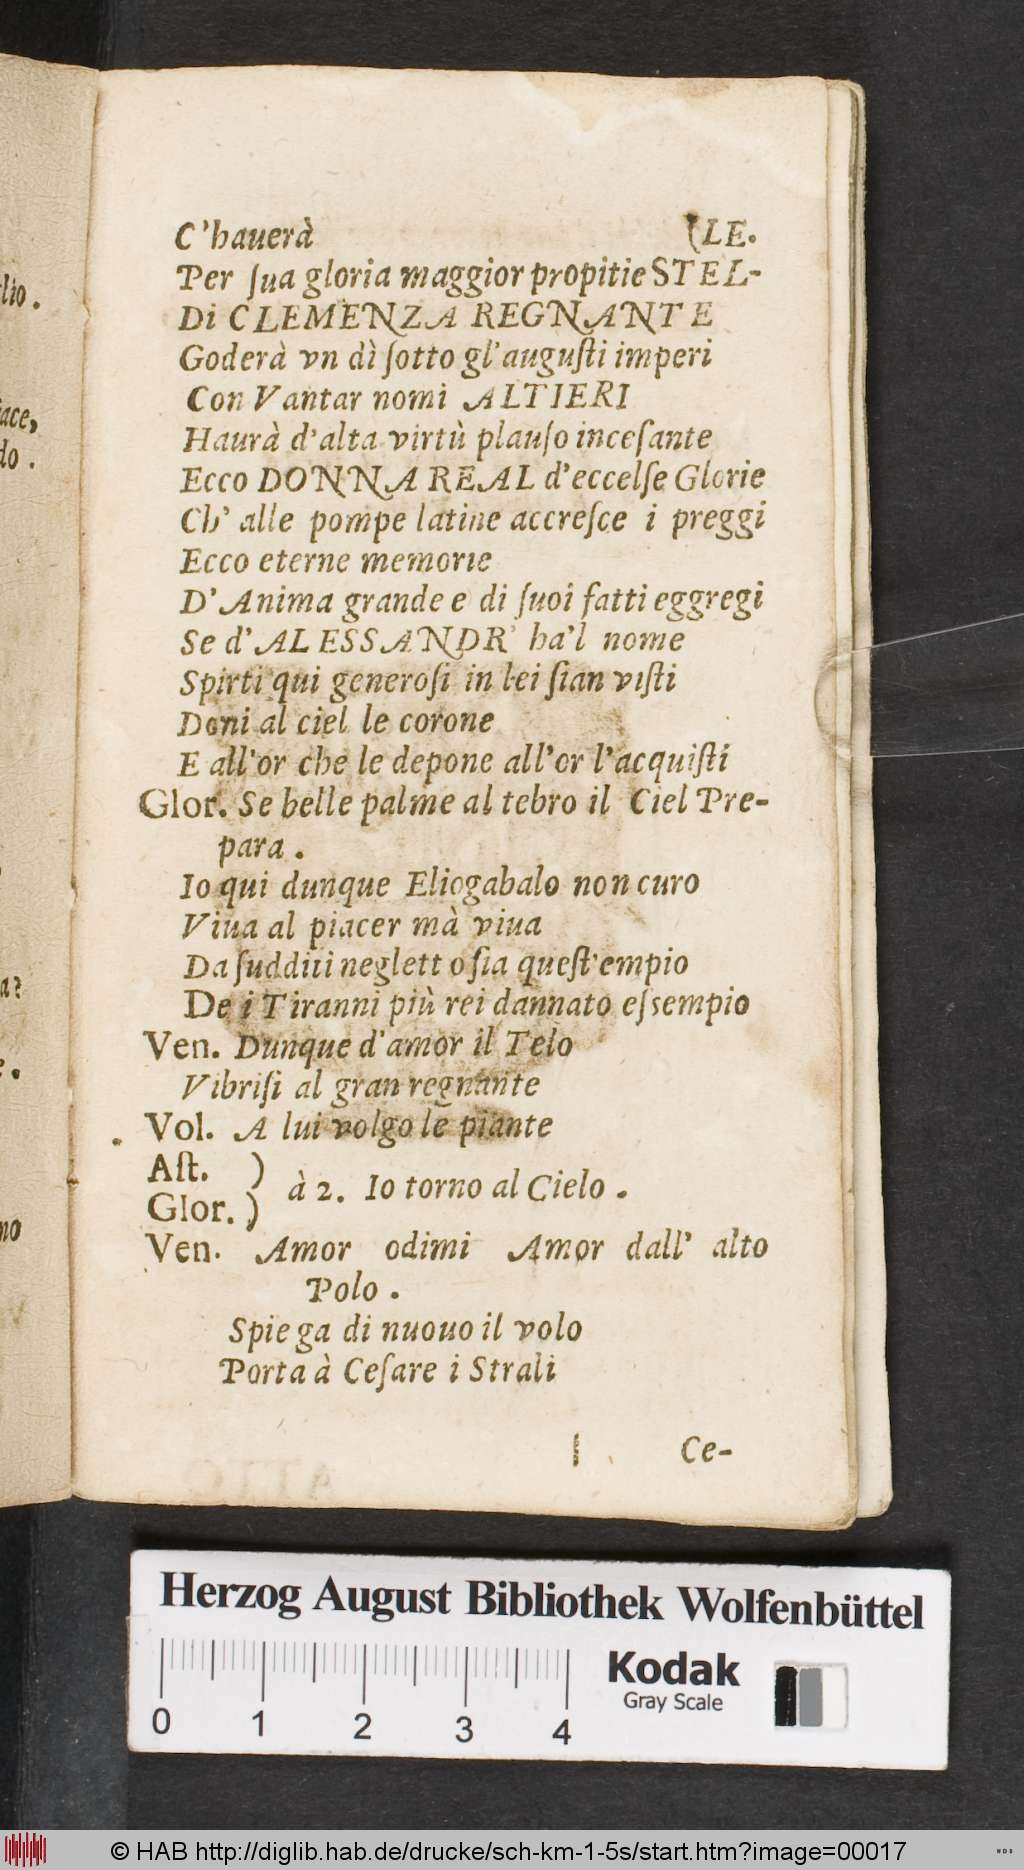 lio.
ace,
do.
a?
e.
no
C'hauerà (LE.
Per ſua gloria maggior propitie STEL-
Di CLEMENZA REGNANTE
Goderà vn dì ſotto gl'auguſti imperi
Con Vantar nomi ALTIERI
Haurà d'alta virtù plauſo inceſante
Ecco DONNA REAL d'eccelſe Glorie
Ch' alle pompe latine accreſce i preggi
Ecco eterne memorie
D'Anima grande e di ſuoi fatti eggregi
Se d'ALESSANDR' ha'l nome
Spirti qui generoſi in lei ſian viſti
Doni al ciel le corone
E all'or che le depone all'or l'acquiſti
Glor. Se belle palme al tebro il Ciel Pre-
para.
Io qui dunque Eliogabalo non curo
Viua al piacer mà viua
Da ſudditi neglett o ſia queſt'empio
De i Tiranni più rei dannato eſsempio
Ven. Dunque d'amor il Telo
Vibriſi al gran regnante
Vol. A lui volgo le piante
Aſt. )
Glor. ) à 2. Io torno al Cielo.
Ven. Amor odimi Amor dall' alto
Polo.
Spiega di nuouo il volo
Porta à Ceſare i Strali
Ce-
Herzog August Bibliothek Wolfenbüttel
Kodak
Gray Scale
0 1 2 3 4
© HAB http://diglib.hab.de/drucke/sch-km-1-5s/start.htm?image=00017